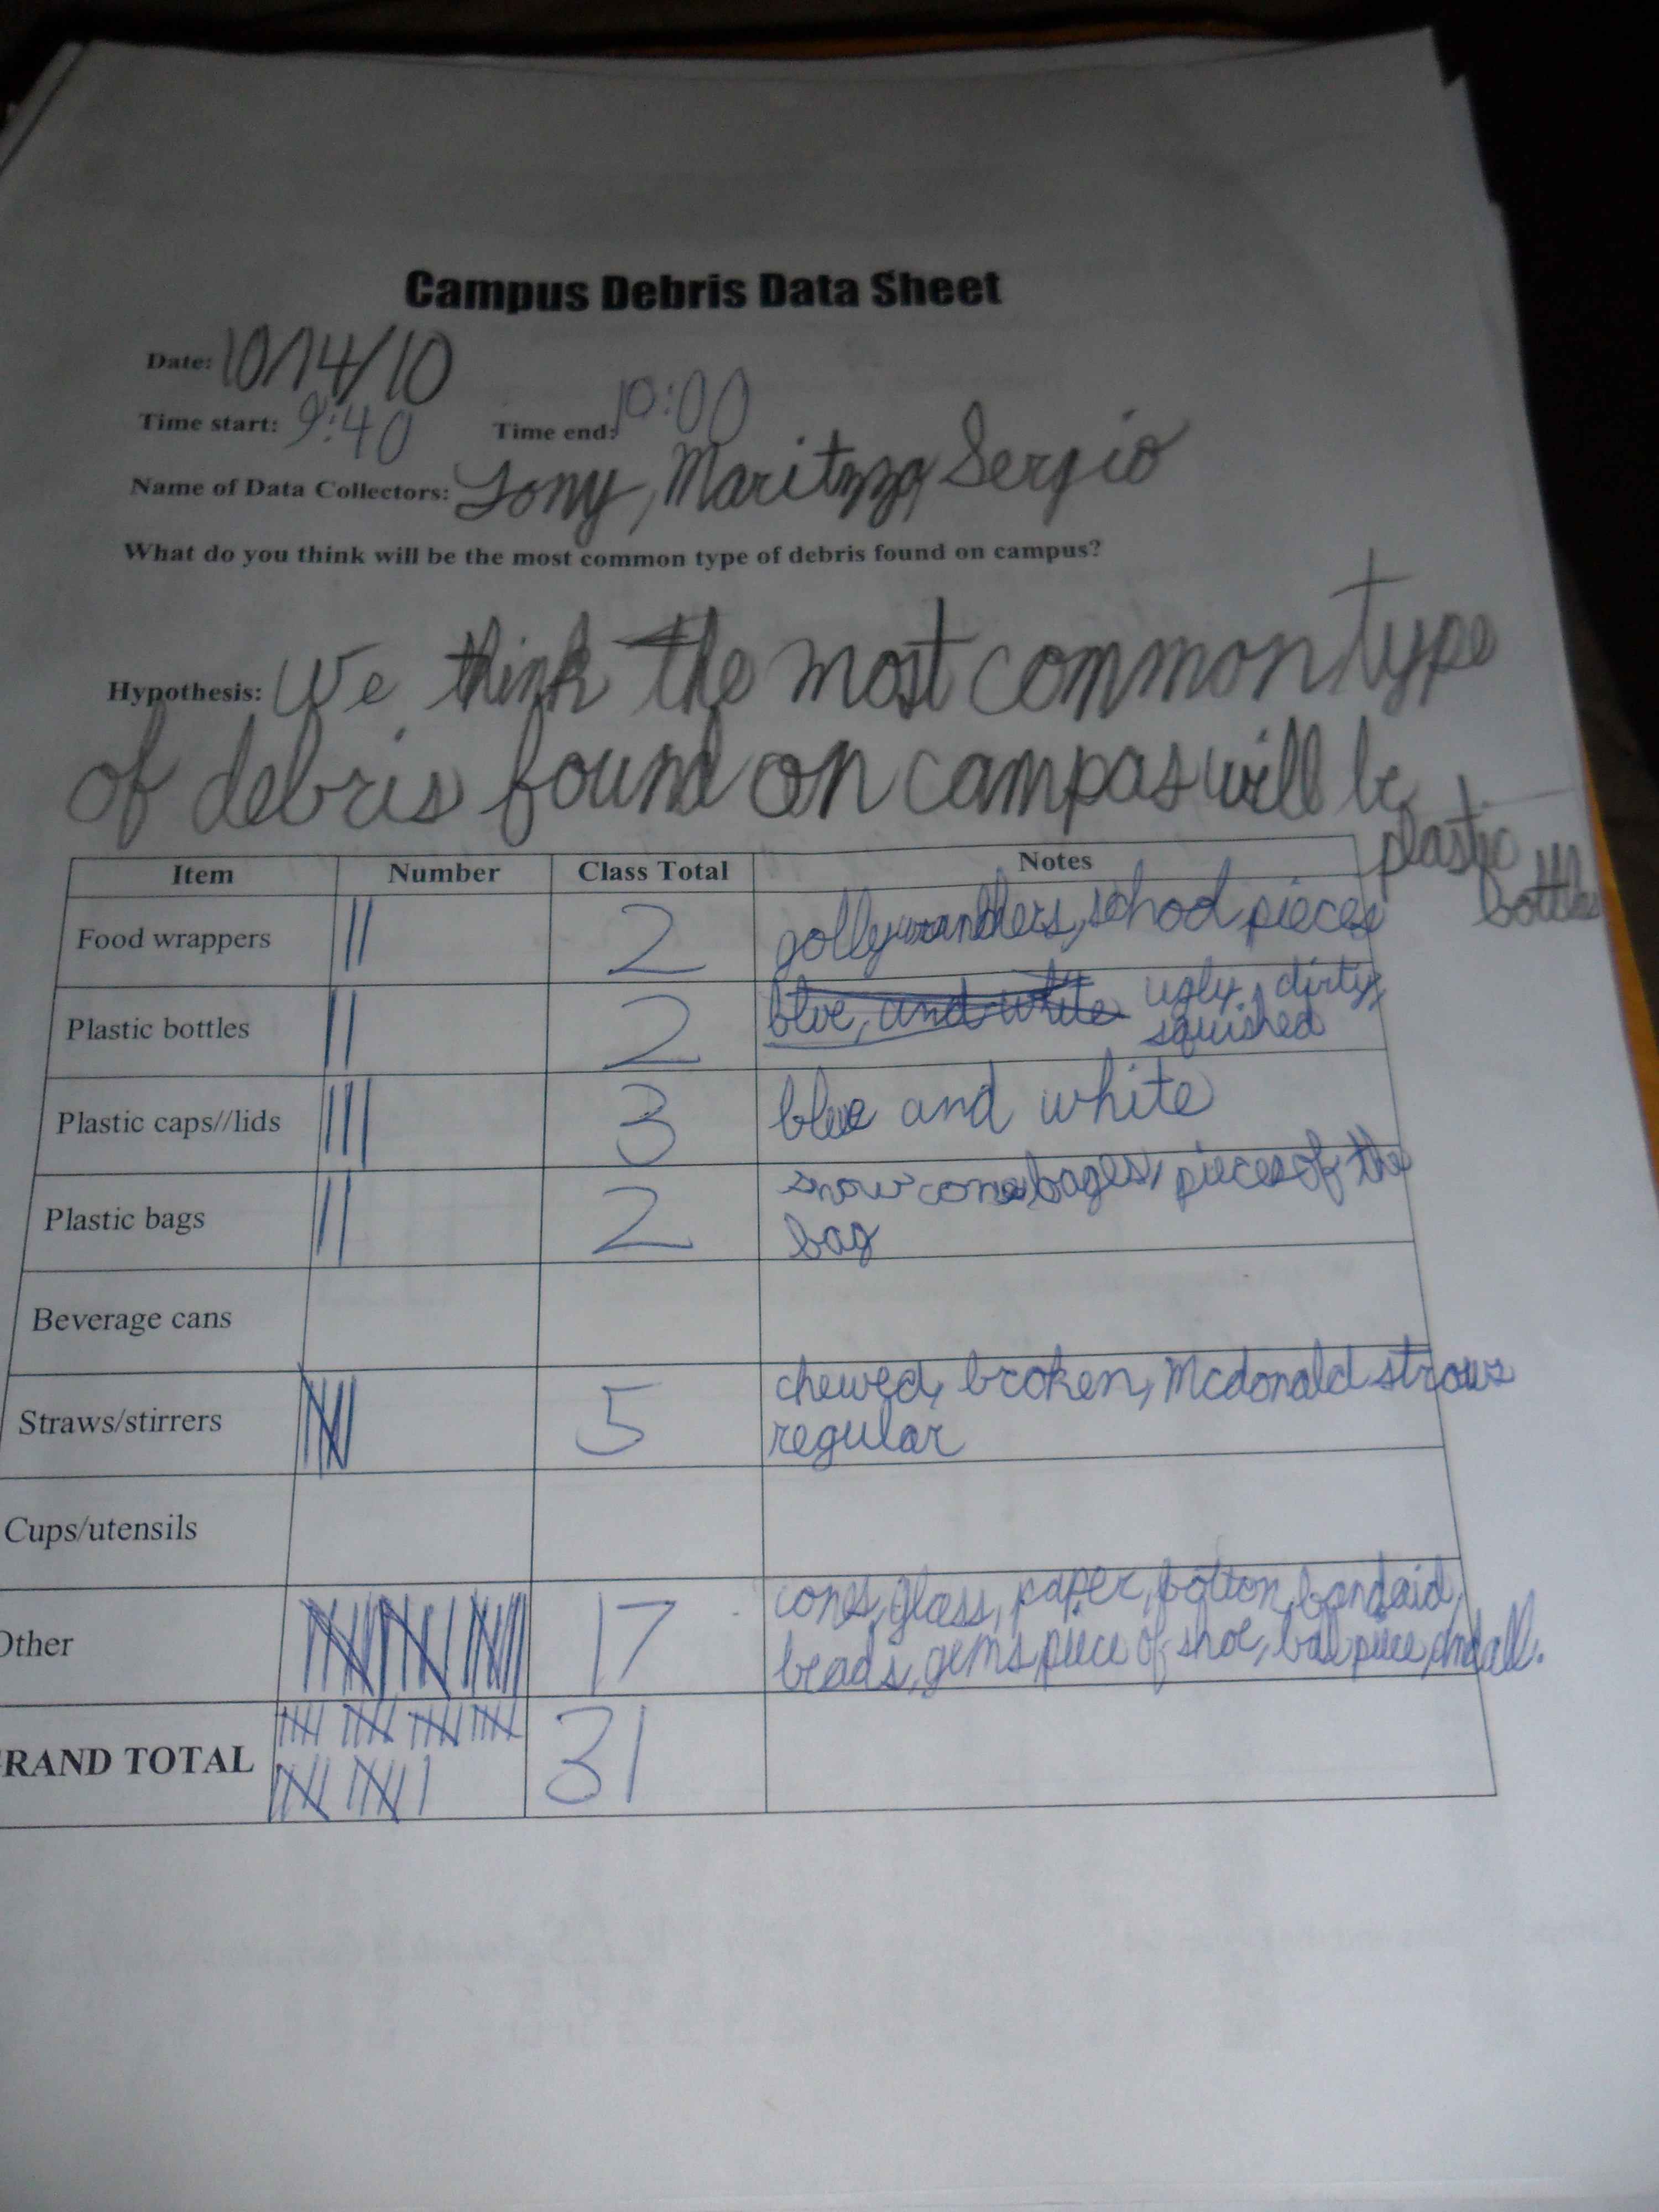 Campus Debris Data Sheet
Date: 10/14/10
Time start: 9:40 Time end: 10:00
Name of Data Collectors: Tony, Maritzza, Sergio
What do you think will be the most common type of debris found on campus?
Hypothesis: We think the most common type
of debris found on campas will be
plastic
bottles
Item Number Class Total Notes
Food wrappers || 2 pieces
Plastic bottles || 2 blue, and white ugly, dirty,
squished
Plastic caps//lids ||| 3 blue and white
Plastic bags || 2 snow cone bages, pieces of the
bag
Beverage cans
Straws/stirrers 5 chewed, broken, Mcdonald straws
regular
Cups/utensils
Other 17 cones, glass, paper, botton, bandaid,
beads, gems, piece of shoe, ball piece, and all.
RAND TOTAL 31